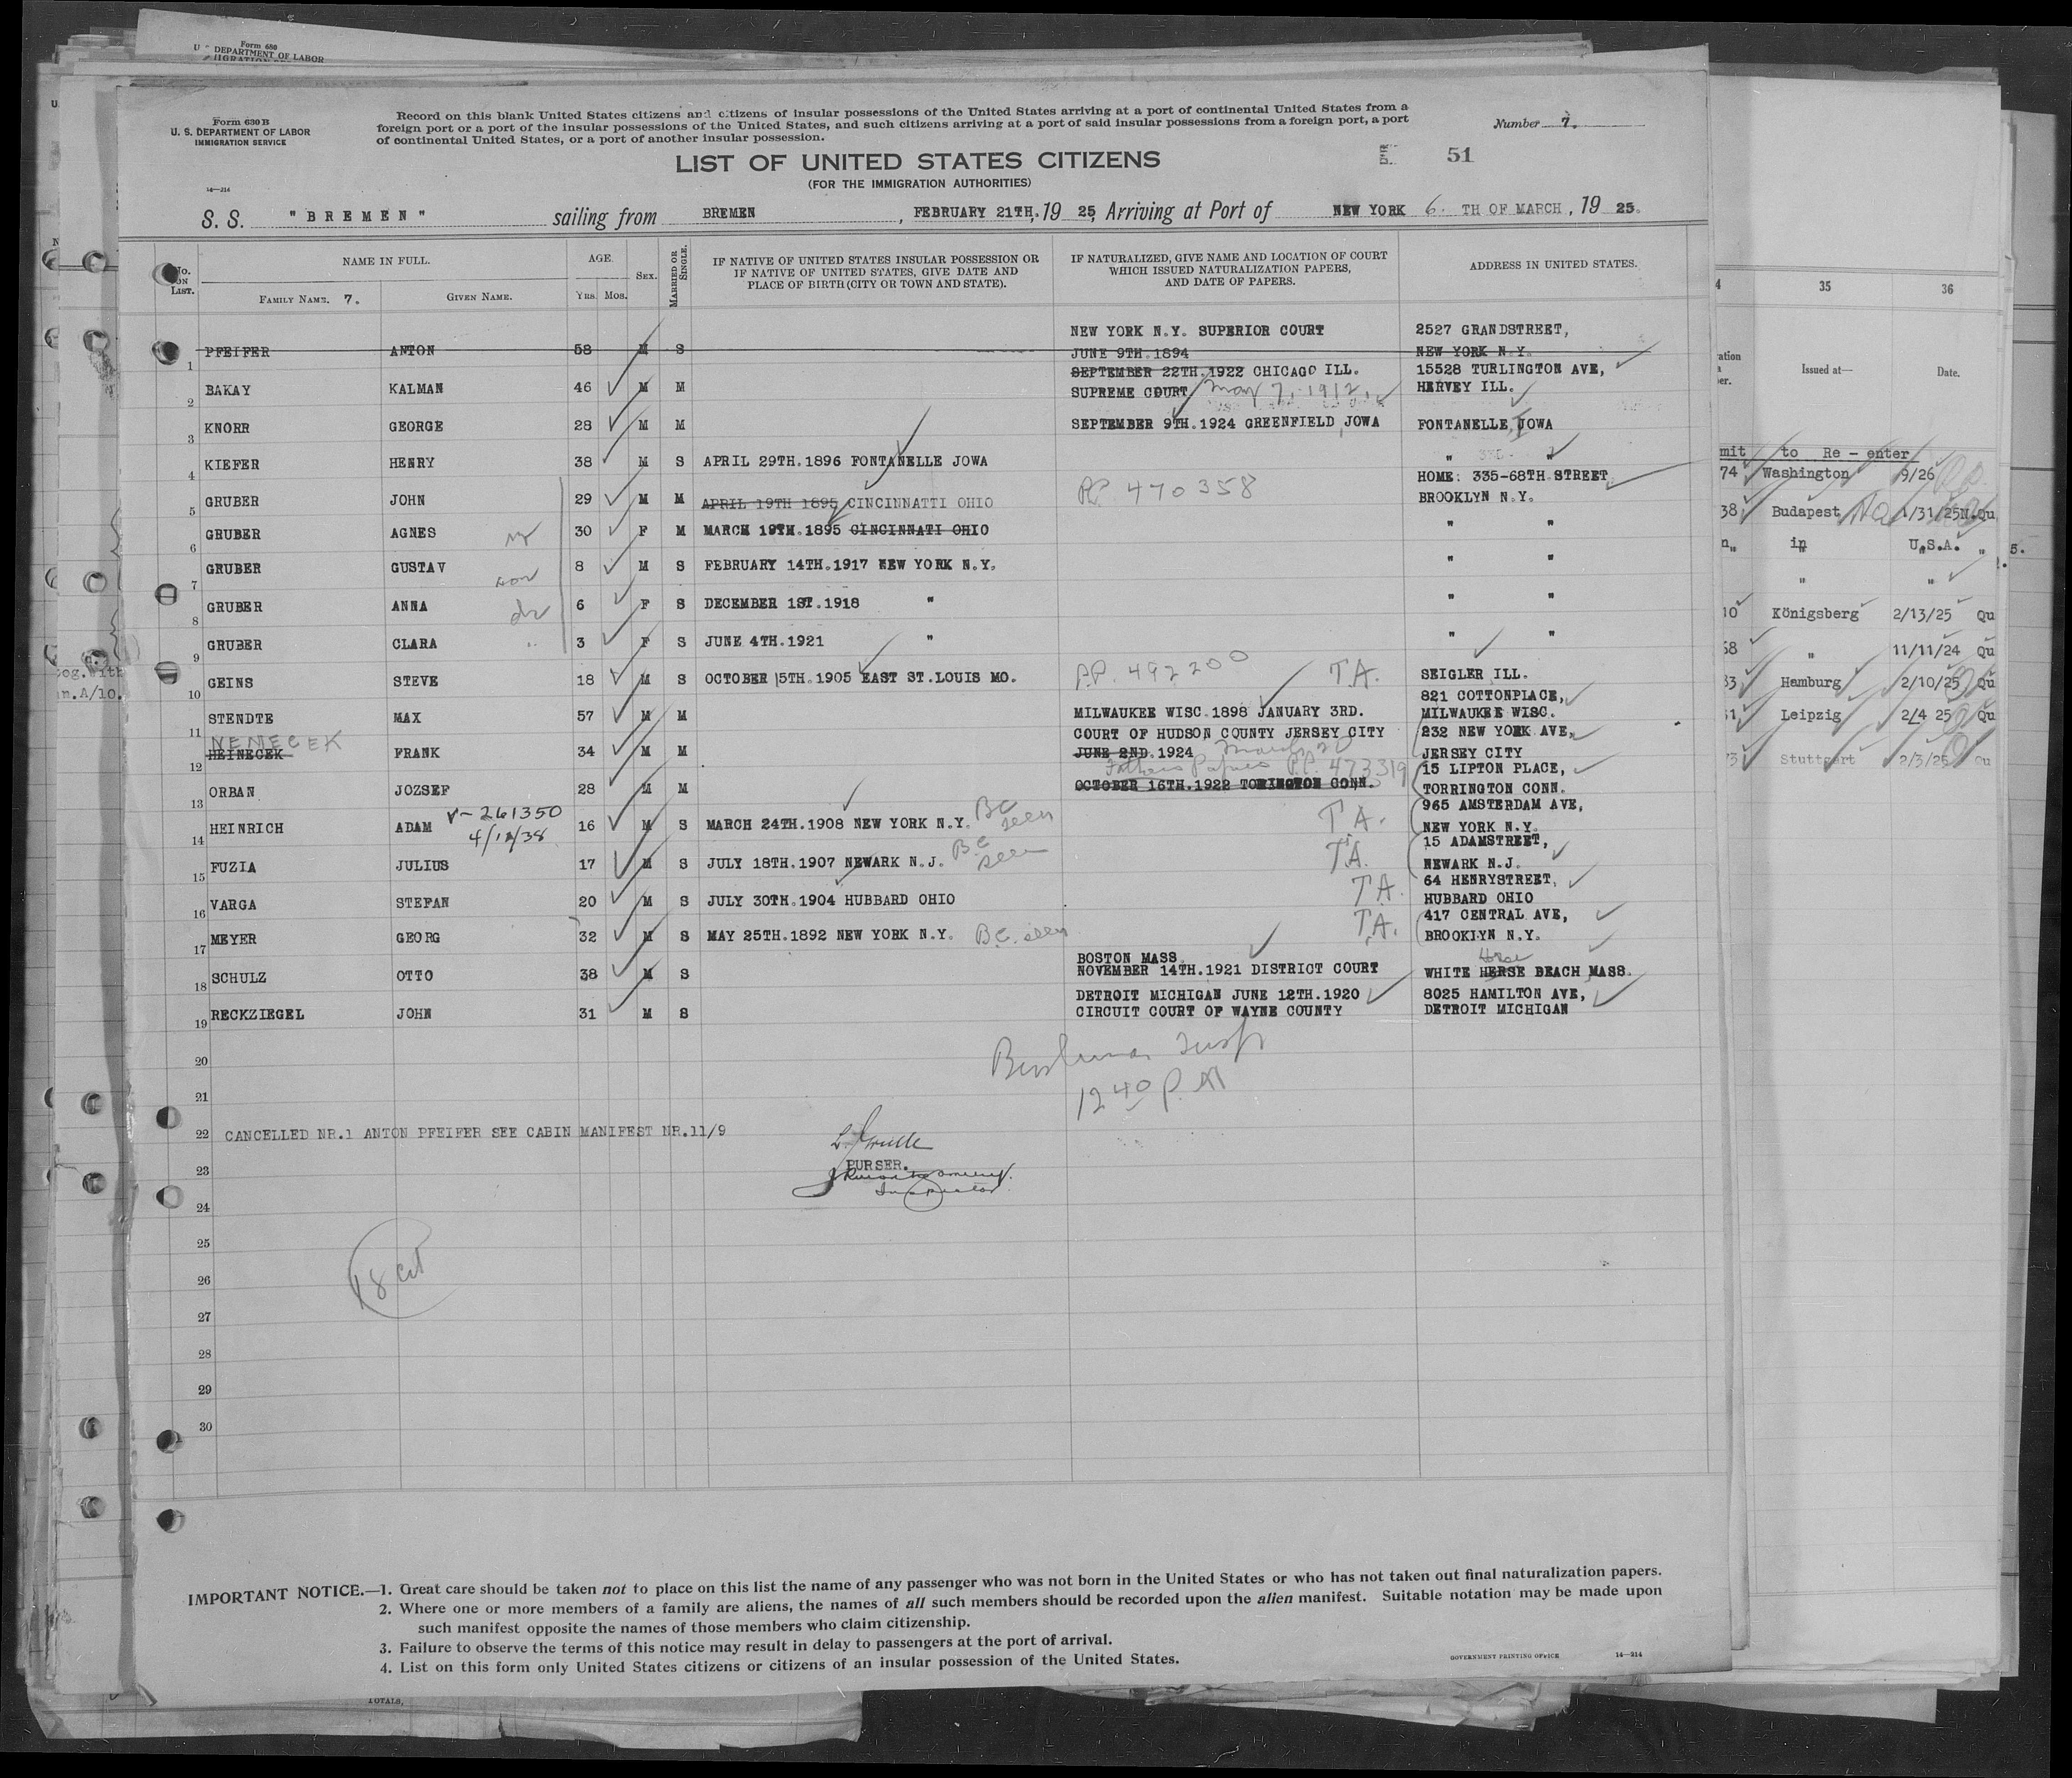 Form 680
U. S. DEPARTMENT OF LABOR
Form 630 B
U. S. DEPARTMENT OF LABOR
IMMIGRATION SERVICE
Record on this blank United States citizens and citizens of insular possessions of the United States arriving at a port of continental United States from a
foreign port or a port of the insular possessions of the United States, and such citizens arriving at a port of said insular possessions from a foreign port, a port
of continental United States, or a port of another insular possession.
Number 7.
LIST OF UNITED STATES CITIZENS
51
(FOR THE IMMIGRATION AUTHORITIES)
14—214
S. S. "BREMEN" sailing from BREMEN, FEBRUARY 21TH. 19 25, Arriving at Port of NEW YORK 6. TH OF MARCH, 19 25.
No. ON LIST.
NAME IN FULL.
FAMILY NAME. 7.
GIVEN NAME.
AGE.
YRS. MOS.
SEX.
MARRIED OR SINGLE.
IF NATIVE OF UNITED STATES INSULAR POSSESSION OR
IF NATIVE OF UNITED STATES, GIVE DATE AND
PLACE OF BIRTH (CITY OR TOWN AND STATE).
IF NATURALIZED, GIVE NAME AND LOCATION OF COURT
WHICH ISSUED NATURALIZATION PAPERS,
AND DATE OF PAPERS.
ADDRESS IN UNITED STATES.
NEW YORK N.Y. SUPERIOR COURT 2527 GRANDSTREET,
1 PFEIFER ANTON 58 M S JUNE 9TH.1894 NEW YORK N.Y.
SEPTEMBER 22TH.1922 CHICAGO ILL. 15528 TURLINGTON AVE,
2 BAKAY KALMAN 46 M M SUPREME COURT May 7, 1912, HERVEY ILL.
3 KNORR GEORGE 28 M M SEPTEMBER 9TH.1924 GREENFIELD JOWA FONTANELLE, JOWA
4 KIEFER HENRY 38 M S APRIL 29TH.1896 FONTANELLE JOWA " "
HOME: 335-68TH STREET
5 GRUBER JOHN 29 M M APRIL 19TH 1895 CINCINNATTI OHIO P.P. 470358 BROOKLYN N.Y.
6 GRUBER AGNES 30 F M MARCH 19TH.1895 CINCINNATI OHIO " "
7 GRUBER GUSTAV son 8 M S FEBRUARY 14TH.1917 NEW YORK N.Y. " "
8 GRUBER ANNA 6 F S DECEMBER 1ST.1918 " " "
9 GRUBER CLARA 3 F S JUNE 4TH.1921 " " "
10 GEINS STEVE 18 M S OCTOBER 15TH.1905 EAST ST.LOUIS MO. P.P. 492200 T.A. SEIGLER ILL.
821 COTTONPLACE,
11 STENDTE MAX 57 M M MILWAUKEE WISC.1898 JANUARY 3RD. MILWAUKEE WISC.
NEMECEK COURT OF HUDSON COUNTY JERSEY CITY 232 NEW YORK AVE,
12 HEINECEK FRANK 34 M M JUNE 2ND.1924 March 20 JERSEY CITY
Fathers Papers P.P. 473319 15 LIPTON PLACE,
13 ORBAN JOZSEF 28 M M OCTOBER 16TH.1922 TORINGTON CONN. TORRINGTON CONN.
V-261350 965 AMSTERDAM AVE,
14 HEINRICH ADAM 4/12/38 16 M S MARCH 24TH.1908 NEW YORK N.Y. B.C. seen T.A. NEW YORK N.Y.
15 ADAMSTREET,
15 FUZIA JULIUS 17 M S JULY 18TH.1907 NEWARK N.J. B.C. seen T.A. NEWARK N.J.
64 HENRYSTREET,
16 VARGA STEFAN 20 M S JULY 30TH.1904 HUBBARD OHIO T.A. HUBBARD OHIO
417 CENTRAL AVE,
17 MEYER GEORG 32 M S MAY 25TH.1892 NEW YORK N.Y. B.C. seen T.A. BROOKLYN N.Y.
BOSTON MASS.
18 SCHULZ OTTO 38 M S NOVEMBER 14TH.1921 DISTRICT COURT WHITE HERSE BEACH MASS.
DETROIT MICHIGAN JUNE 12TH.1920 8025 HAMILTON AVE,
19 RECKZIEGEL JOHN 31 M S CIRCUIT COURT OF WAYNE COUNTY DETROIT MICHIGAN
20
12 40 P.M
21
22 CANCELLED NR.1 ANTON PFEIFER SEE CABIN MANIFEST NR.11/9
PURSER.
23
Inspector
24
25
18 cit
26
27
28
29
30
IMPORTANT NOTICE.—1. Great care should be taken not to place on this list the name of any passenger who was not born in the United States or who has not taken out final naturalization papers.
2. Where one or more members of a family are aliens, the names of all such members should be recorded upon the alien manifest. Suitable notation may be made upon
such manifest opposite the names of those members who claim citizenship.
3. Failure to observe the terms of this notice may result in delay to passengers at the port of arrival.
4. List on this form only United States citizens or citizens of an insular possession of the United States.
GOVERNMENT PRINTING OFFICE 14—214
TOTALS,
35 36
Issued at— Date.
mit to Re - enter
74 Washington 9/26
38 Budapest 1/31/25 Qu
in U.S.A. "
" "
10 Königsberg 2/13/25 Qu
58 " 11/11/24 Qu
33 Hamburg 2/10/25 Qu
51 Leipzig 2/4 25 Qu
73 Stuttgart 2/3/25 Qu